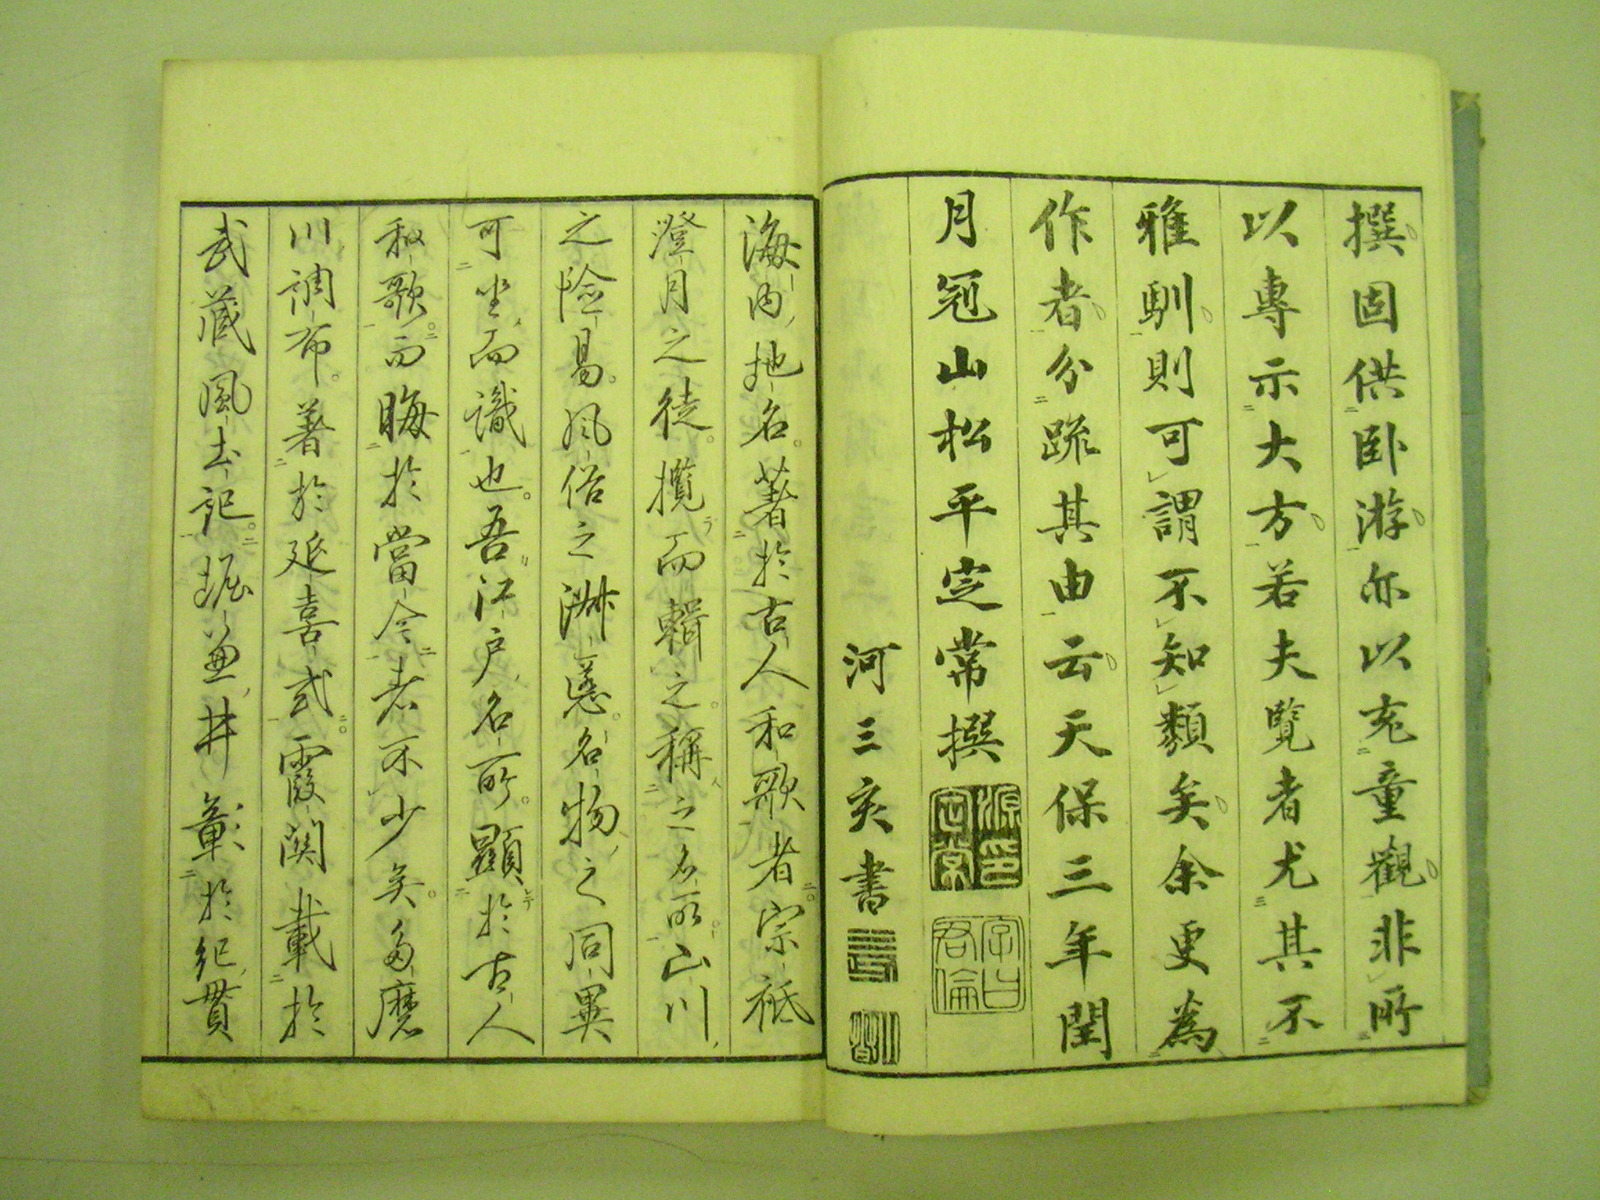 撰固供臥游亦以充童觀非所
以專示大方若夫覽者尤其不
雅馴則可謂不知類矣余更為
作者分疏其由云天保三年閏
月冠山松平定常撰
源印定常
字曰君倫
河三亥書
海内地名著於古人和歌者宗祇
澄月之徒攬而輯之稱之名所山川
之險易風俗之淋慝名物之同異
可坐而識也吾江戶名所顯於古人
和歌而晦於當今者不少矣多磨
川調布著於延喜式霞関載於
武藏風土記堀兼井彰於紀貫